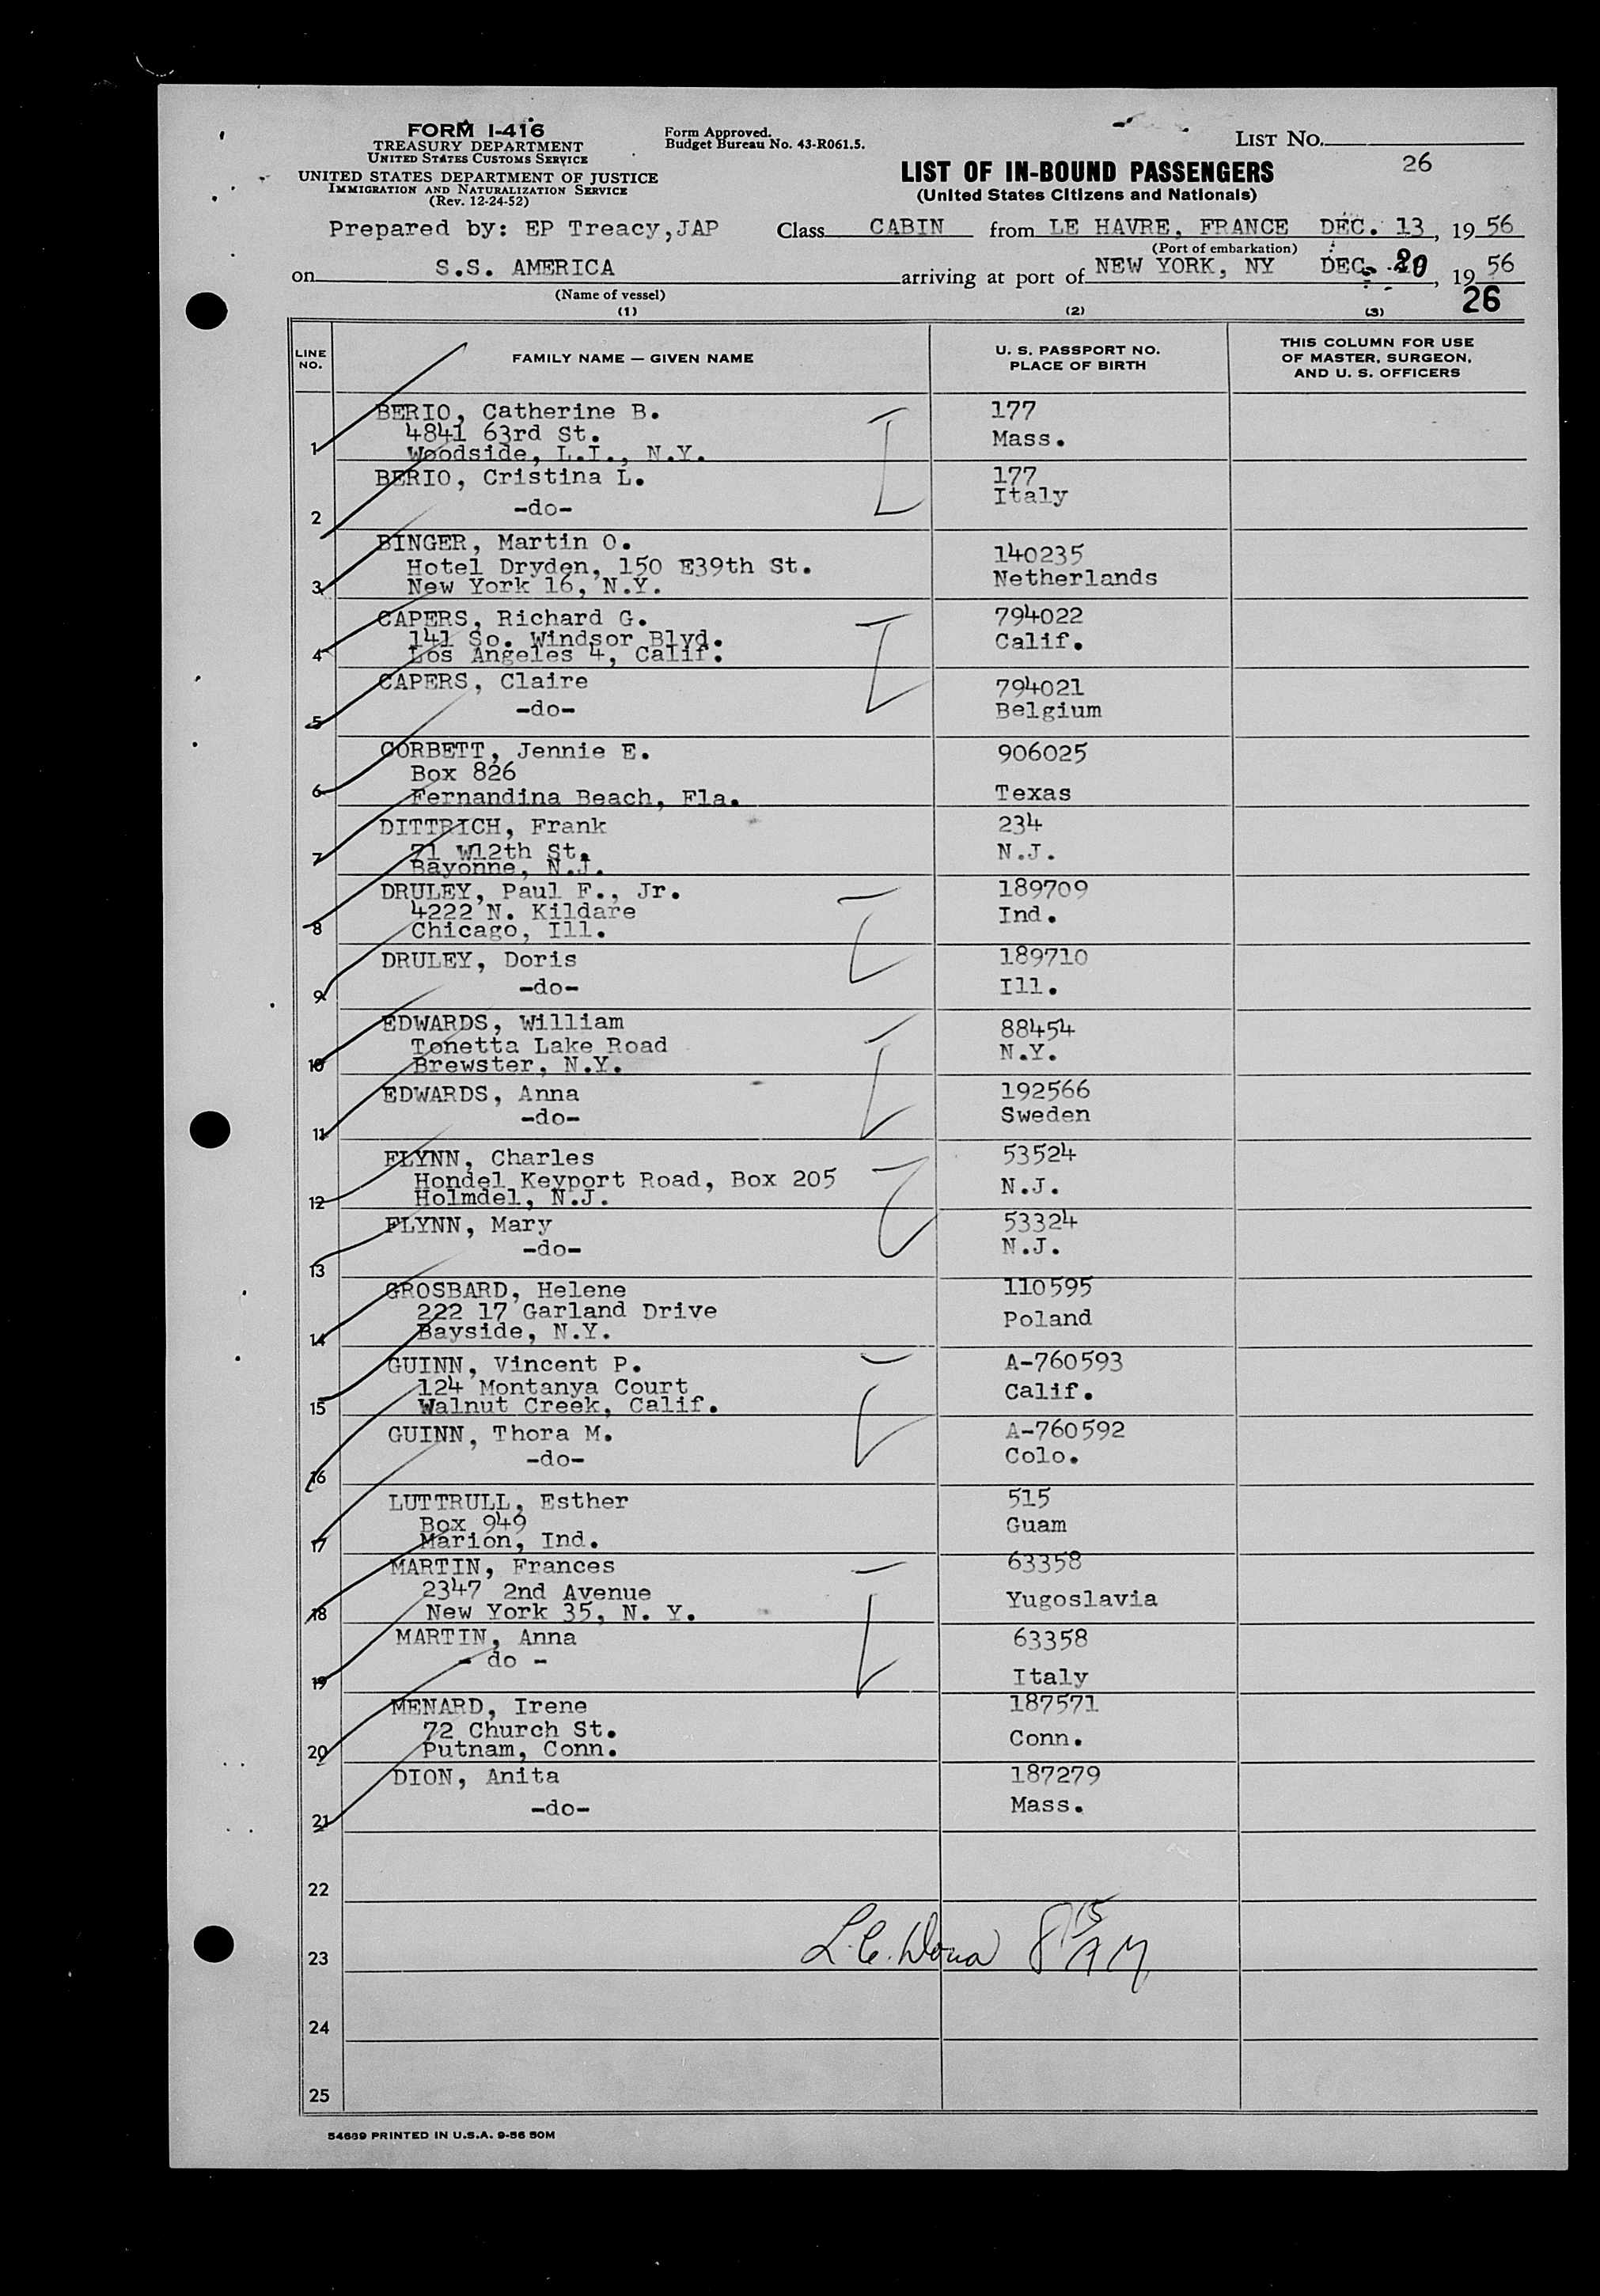 FORM I-416
TREASURY DEPARTMENT
UNITED STATES CUSTOMS SERVICE
UNITED STATES DEPARTMENT OF JUSTICE
IMMIGRATION AND NATURALIZATION SERVICE
(Rev. 12-24-52)
Form Approved.
Budget Bureau No. 43-R061.5.
LIST NO.
26
LIST OF IN-BOUND PASSENGERS
(United States Citizens and Nationals)
Prepared by: EP Treacy,JAP Class CABIN from LE HAVRE, FRANCE DEC. 13, 19 56
(Port of embarkation)
on S.S. AMERICA arriving at port of NEW YORK, NY DEC. 20, 19 56
(Name of vessel)
26
(1) (2) (3)
LINE NO. FAMILY NAME — GIVEN NAME U. S. PASSPORT NO. PLACE OF BIRTH THIS COLUMN FOR USE OF MASTER, SURGEON, AND U. S. OFFICERS
BERIO, Catherine B. 177
4841 63rd St. Mass.
1 Woodside, L.I., N.Y.
BERIO, Cristina L. 177
Italy
2 -do-
BINGER, Martin O. 140235
Hotel Dryden, 150 E39th St. Netherlands
3 New York 16, N.Y.
CAPERS, Richard G. 794022
141 So. Windsor Blvd. Calif.
4 Los Angeles 4, Calif.
CAPERS, Claire 794021
5 -do- Belgium
CORBETT, Jennie E. 906025
Box 826
6 Fernandina Beach, Fla. Texas
DITTRICH, Frank 234
71 W12th St. N.J.
7 Bayonne, N.J.
DRULEY, Paul F., Jr. 189709
4222 N. Kildare Ind.
8 Chicago, Ill.
DRULEY, Doris 189710
9 -do- Ill.
EDWARDS, William 88454
Tonetta Lake Road N.Y.
10 Brewster, N.Y.
EDWARDS, Anna 192566
11 -do- Sweden
FLYNN, Charles 53524
Hondel Keyport Road, Box 205 N.J.
12 Holmdel, N.J.
FLYNN, Mary 53324
13 -do- N.J.
GROSBARD, Helene 110595
222 17 Garland Drive Poland
14 Bayside, N.Y.
GUINN, Vincent P. A-760593
124 Montanya Court Calif.
15 Walnut Creek, Calif.
GUINN, Thora M. A-760592
16 -do- Colo.
LUTTRULL, Esther 515
Box 949 Guam
17 Marion, Ind.
MARTIN, Frances 63358
2347 2nd Avenue Yugoslavia
18 New York 35, N. Y.
MARTIN, Anna 63358
19 - do - Italy
MENARD, Irene 187571
72 Church St. Conn.
20 Putnam, Conn.
DION, Anita 187279
21 -do- Mass.
22
23 8 15 AM
24
25
54689 PRINTED IN U.S.A. 9-56 50M